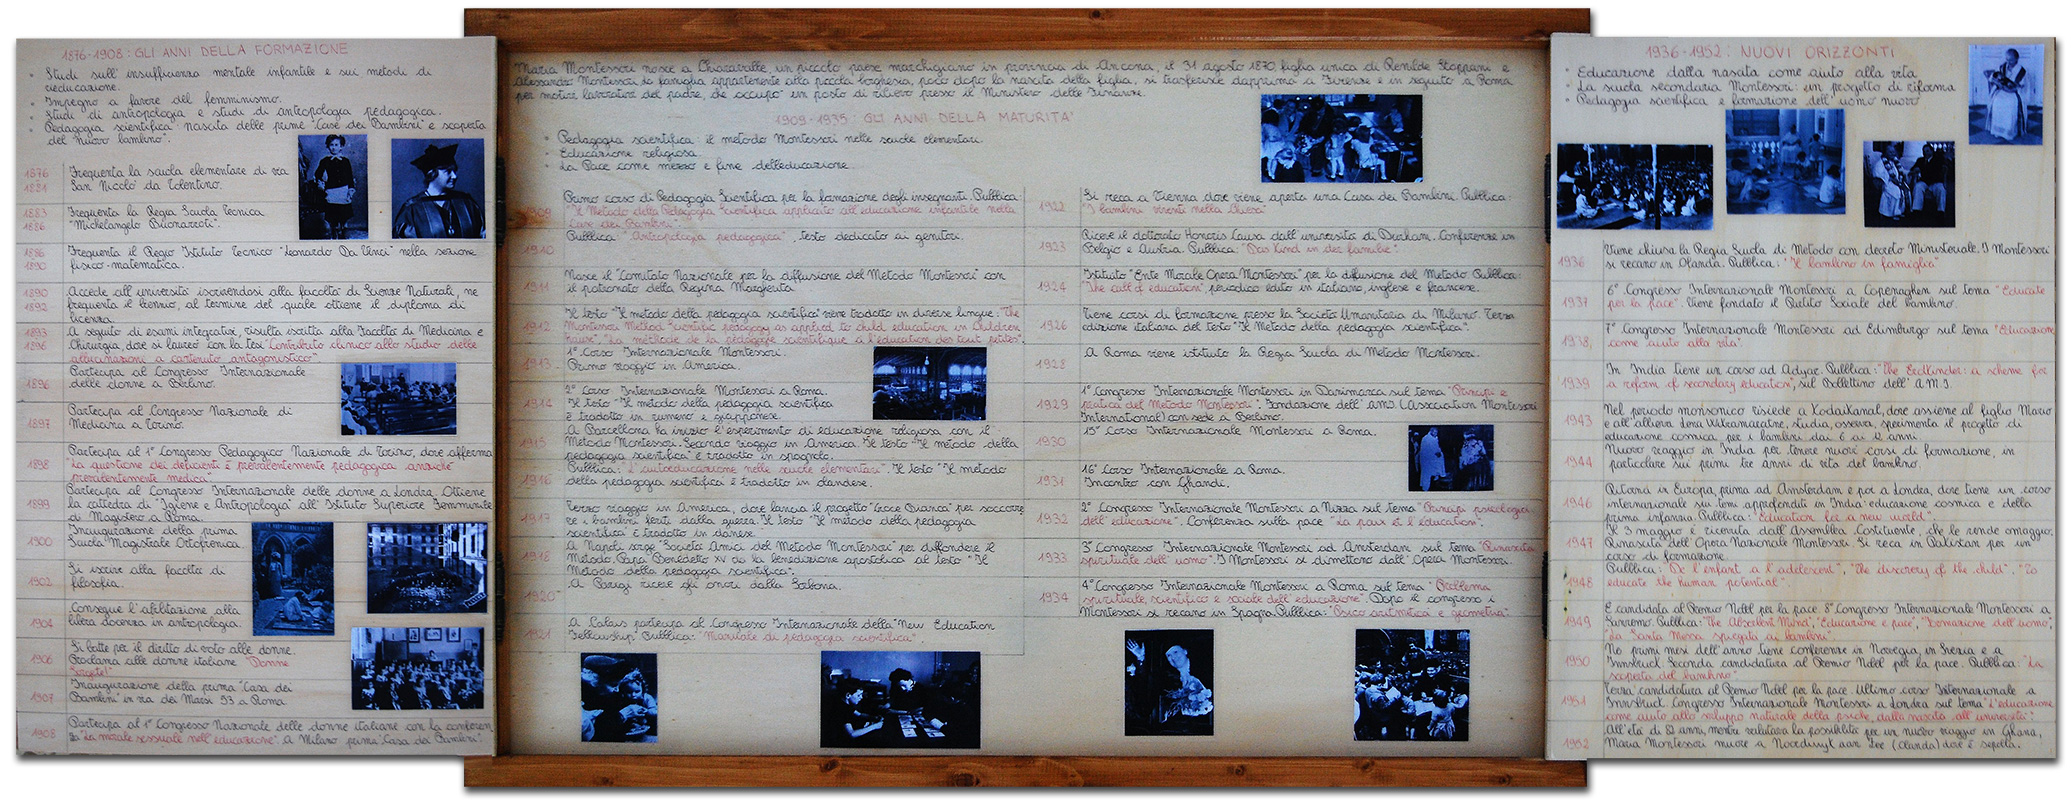 1876-1908: GLI ANNI DELLA FORMAZIONE
• Studi sull'insufficienza mentale infantile e sui metodi di
rieducazione.
• Impegno a favore del femminismo.
• Studi di antropologia e studi di antropologia pedagogica.
• Pedagogia scientifica: nascita delle prime "Case dei Bambini" e scoperta
del "nuovo bambino".
1876
1881
Frequenta la scuola elementare di via
San Nicolò da Tolentino.
1883
1886
Frequenta la Regia Scuola Tecnica
"Michelangelo Buonarroti".
1886
1890
Frequenta il Regio Istituto Tecnico "Leonardo Da Vinci" nella sezione
fisico-matematica.
1890
1892
Accede all'università iscrivendosi alla facoltà di Scienze Naturali, ne
frequenta il biennio, al termine del quale ottiene il diploma di
licenza.
1893
1896
A seguito di esami integrativi, risulta iscritta alla Facoltà di Medicina e
Chirurgia, dove si laurea con la tesi "Contributo clinico allo studio delle
allucinazioni a contenuto antagonistico".
1896
Partecipa al Congresso Internazionale
delle donne a Berlino.
1897
Partecipa al Congresso Nazionale di
Medicina a Torino.
1898
Partecipa al 1° Congresso Pedagogico Nazionale di Torino, dove afferma
"La questione dei deficienti è prevalentemente pedagogica anziché
prevalentemente medica".
1899
Partecipa al Congresso Internazionale delle donne a Londra. Ottiene
la cattedra di "Igiene e Antropologia" all'Istituto Superiore Femminile
di Magistero a Roma.
1900
Inaugurazione della prima
Scuola Magistrale Ortofrenica.
1902
Si iscrive alla facoltà di
filosofia.
1904
Consegue l'abilitazione alla
libera docenza in antropologia.
1906
Si batte per il diritto di voto alle donne.
Proclama alle donne italiane "Donne
Sorgete!"
1907
Inaugurazione della prima "Casa dei
Bambini" in via dei Marsi 53 a Roma
1908
Partecipa al 1° Congresso Nazionale delle donne italiane con la conferen
za "La morale sessuale nell'educazione". A Milano prima "Casa dei Bambini".
Maria Montessori nasce a Chiaravalle, un piccolo paese marchigiano in provincia di Ancona, il 31 agosto 1870, figlia unica di Renilde Stoppani e
Alessandro Montessori. La famiglia, appartenente alla piccola borghesia, poco dopo la nascita della figlia, si trasferisce dapprima a Firenze e in seguito a Roma
per motivi lavorativi del padre, che occupò un posto di rilievo presso il Ministero delle Finanze.
1909-1935: GLI ANNI DELLA MATURITA'
• Pedagogia scientifica: il metodo Montessori nelle scuole elementari.
• Educazione religiosa.
• La Pace come mezzo e fine dell'educazione.
1909
Primo corso di Pedagogia Scientifica per la formazione degli insegnanti. Pubblica
"Il Metodo della Pedagogia Scientifica applicato all'educazione infantile nella
Case dei Bambini".
1910
Pubblica: "Antropologia pedagogica", testo dedicato ai genitori.
1911
Nasce il "Comitato Nazionale per la diffusione del Metodo Montessori" con
il patronato della Regina Margherita
1912
Il testo "Il metodo della pedagogia scientifica" viene tradotto in diverse lingue: "The
Montessori Method Scientific pedagogy as applied to child education in Children
house", "La méthode de la pédagogie scientifique à l'éducation des tout petites".
1913
1° Corso Internazionale Montessori.
Primo viaggio in America.
1914
2° Corso Internazionale Montessori a Roma.
Il testo "Il metodo della pedagogia scientifica
è tradotto in rumeno e giapponese.
1915
A Barcellona ha inizio l'esperimento di educazione religiosa con il
Metodo Montessori. Secondo viaggio in America. Il testo "Il metodo della
pedagogia scientifica" è tradotto in spagnolo.
1916
Pubblica: "L'autoeducazione nelle scuole elementari". Il testo "Il metodo
della pedagogia scientifica" è tradotto in olandese.
1917
Terzo viaggio in America, dove lancia il progetto "Croce Bianca" per soccorre
re i bambini feriti dalla guerra. Il testo "Il metodo della pedagogia
scientifica" è tradotto in danese.
1918
A Napoli sorge "Società Amici del Metodo Montessori" per diffondere il
Metodo. Papa Benedetto XV dà la benedizione apostolica al testo "Il
Metodo della pedagogia scientifica".
1920
A Parigi riceve gli onori dalla Sorbona.
1921
A Calais partecipa al Congresso Internazionale della "New Education
Fellowship". Pubblica: "Manuale di pedagogia scientifica".
1922
Si reca a Vienna dove viene aperta una Casa dei Bambini. Pubblica:
"I bambini viventi nella Chiesa"
1923
Riceve il dottorato Honoris Causa dall'università di Durham. Conferenze in
Belgio e Austria. Pubblica: "Das Kind in der familie".
1924
Istituto "Ente Morale Opera Montessori" per la diffusione del Metodo. Pubblica:
"The call of education", periodico edito in italiano, inglese e francese.
1926
Tiene corsi di formazione presso la Società Umanitaria di Milano. Terza
edizione italiana del testo "Il Metodo della pedagogia scientifica".
1928
A Roma viene istituito la Regia Scuola di Metodo Montessori.
1929
1° Congresso Internazionale Montessori in Danimarca sul tema "Principi e
pratica del Metodo Montessori". Fondazione dell'A.M.I. (Association Montessori
International) con sede a Berlino.
1930
15° Corso Internazionale Montessori a Roma.
1931
16° Corso Internazionale a Roma.
Incontro con Ghandi.
1932
2° Congresso Internazionale Montessori a Nizza sul tema "Principi psicologici
dell'educazione". Conferenza sulla pace "La paix et l'éducation".
1933
3° Congresso Internazionale Montessori ad Amsterdam sul tema "Rinascita
spirituale dell'uomo". I Montessori si dimettono dall'Opera Montessori.
1934
4° Congresso Internazionale Montessori a Roma sul tema "Problema
spirituale, scientifico e sociale dell'educazione". Dopo il congresso i
Montessori si recano in Spagna. Pubblica: "Psico aritmetica e geometria".
1936-1952: NUOVI ORIZZONTI
• Educazione dalla nascita come aiuto alla vita
• La scuola secondaria Montessori: un progetto di riforma
• Pedagogia scientifica e formazione dell'uomo nuovo
1936
Viene chiusa la Regia Scuola di Metodo con decreto Ministeriale. I Montessori
si recano in Olanda. Pubblica: "Il bambino in famiglia"
1937
6° Congresso Internazionale Montessori a Copenaghen sul tema "Educate
per la pace". Viene fondato il Partito Sociale del bambino.
1938
7° Congresso Internazionale Montessori ad Edimburgo sul tema "Educazione
come aiuto alla vita".
1939
In India tiene un corso ad Adyar. Pubblica: "The Erdkinder: a scheme for
a reform of secondary education", sul Bollettino dell'A.M.I.
1943
Nel periodo monsonico risiede a Kodaikanal, dove assieme al figlio Mario
e all'allieva Lena Wikramaratne, studia, osserva, sperimenta il progetto di
educazione cosmica per i bambini dai 6 ai 12 anni
1944
Nuovo viaggio in India per tenere nuovi corsi di formazione, in
particolare sui primi tre anni di vita del bambino.
1946
Ritorna in Europa, prima ad Amsterdam e poi a Londra, dove tiene un corso
internazionale sui temi approfonditi in India: educazione cosmica e della
prima infanzia. Pubblica: "Education for a new world".
1947
Il 3 maggio è ricevuta dall'Assemblea Costituente, che le rende omaggio.
Rinascita dell'Opera Nazionale Montessori. Si reca in Pakistan per un
corso di formazione.
1948
Pubblica: "De l'enfant a l'adolescent", "The discovery of the child", "To
educate the human potential".
1949
È candidata al Premio Nobel per la pace. 8° Congresso Internazionale Montessori a
Sanremo. Pubblica: "The Absorbent Mind", "Educazione e pace", "Formazione dell'uomo",
"La Santa Messa spiegata ai bambini".
1950
Nei primi mesi dell'anno tiene conferenze in Norvegia, in Svezia e a
Innsbruck. Seconda candidatura al Premio Nobel per la pace. Pubblica: "La
scoperta del bambino"
1951
Terza candidatura al Premio Nobel per la pace. Ultimo corso Internazionale a
Innsbruck. Congresso Internazionale Montessori a Londra sul tema "L'educazione
come aiuto allo sviluppo naturale della psiche, dalla nascita all'università".
1952
All'età di 82 anni, mentre valutava la possibilità per un nuovo viaggio in Ghana,
Maria Montessori muore a Noordwijk aan Zee (Olanda) dove è sepolta.